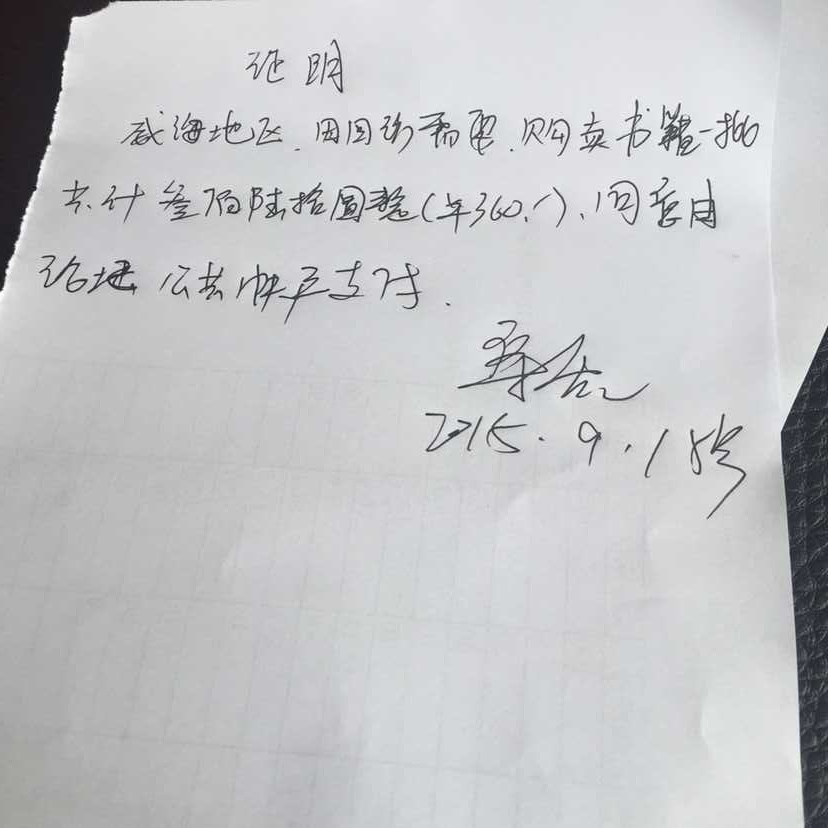 证明
威海地区.因团务需要.购买书籍一批
共计叁佰陆拾圆整(¥360.-).同意由
该地公共帐户支付.
2015.9.18号